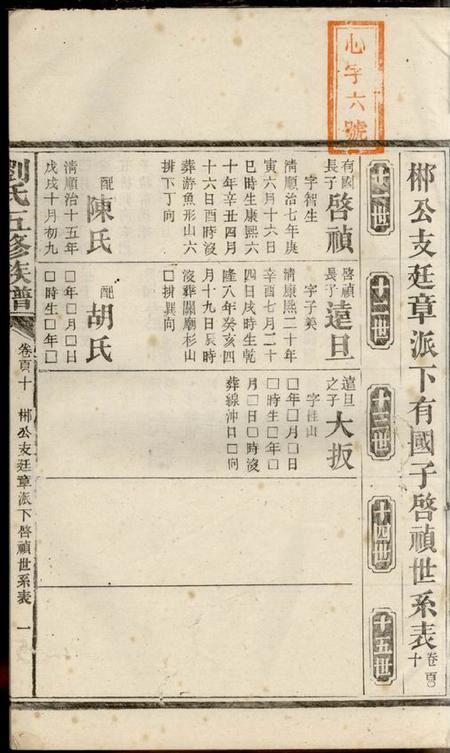 心字六號
郴公支廷章派下有國子啓禎世系表 卷百〇十
十一世
十二世
十三世
十四世
十五世
有國長子啓禎
字智生
清順治七年庚
寅六月十六日
巳時生康熙六
十年辛丑四月
十六日酉時沒
葬游魚形山六
排丁向
配陳氏
清順治十五年
戊戌十月初九
啓禎長子遠旦
字子美
清康熙二十年
辛酉七月二十
四日戌時生乾
隆八年癸亥四
月十九日辰時
沒葬關廟杉山
□排巽向
配胡氏
□年□月□日
□時生□年□
遠旦之子大扳
字桂山
□年□月□日
□時生□年□
月□日□時沒
葬線沖口□向
劉氏五修族譜
卷百十
郴公支廷章派下啓禎世系表
一